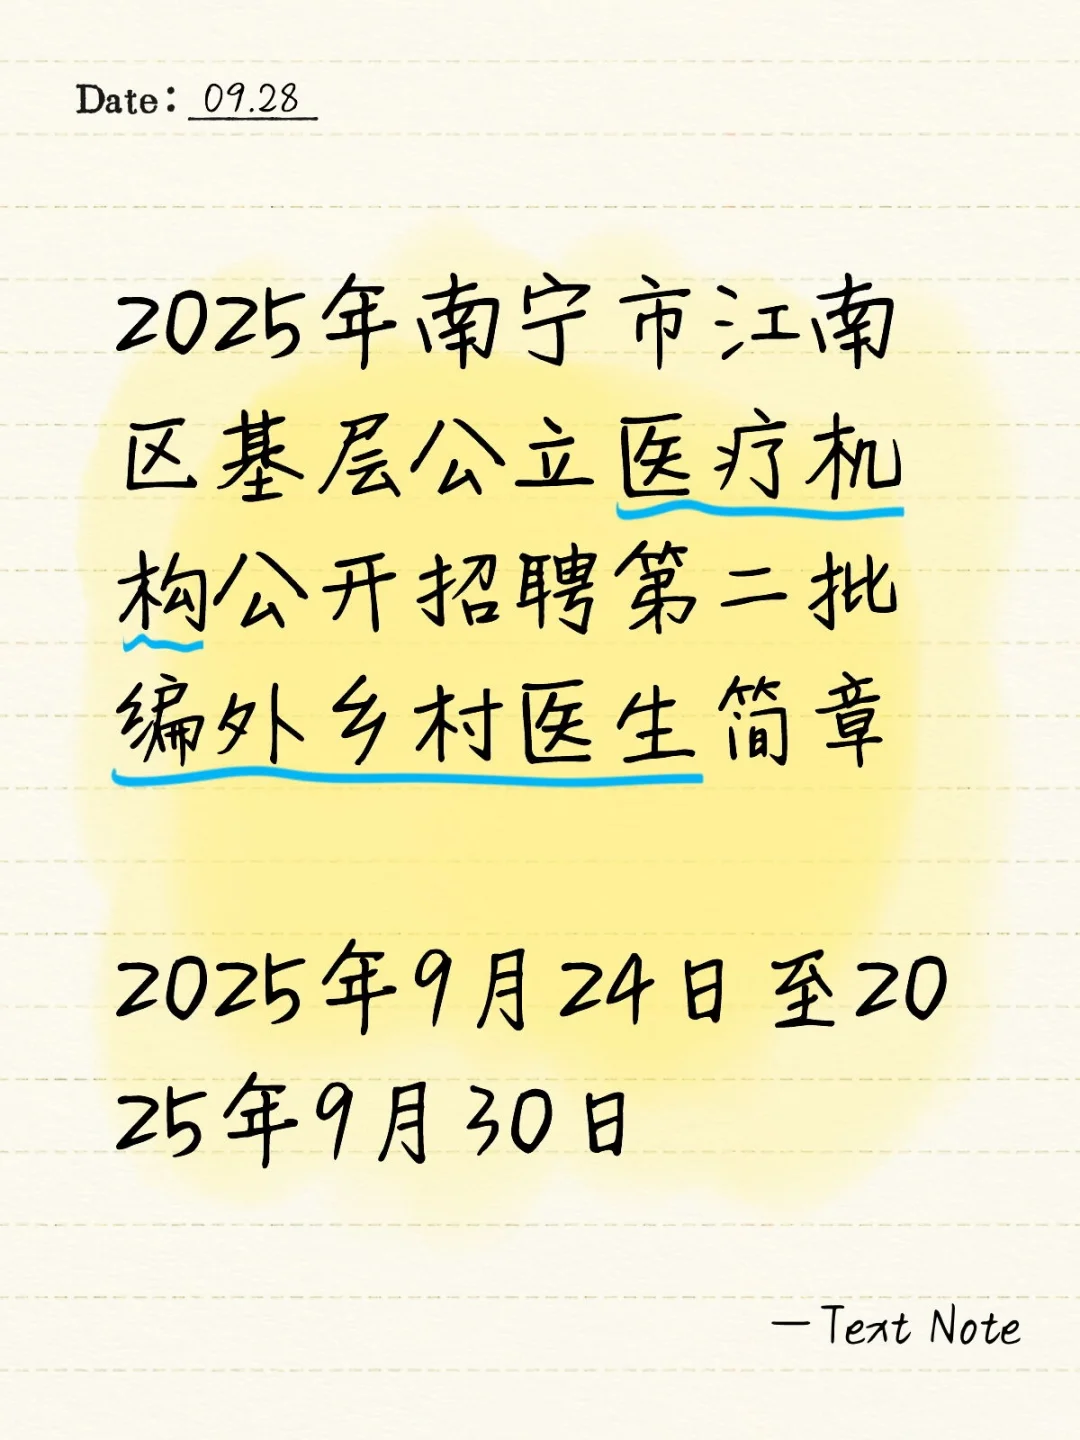 Date: 09.28
2025年南宁市江南
区基层公立医疗机
构公开招聘第二批
编外乡村医生简章
2025年9月24日至20
25年9月30日
—Text Note